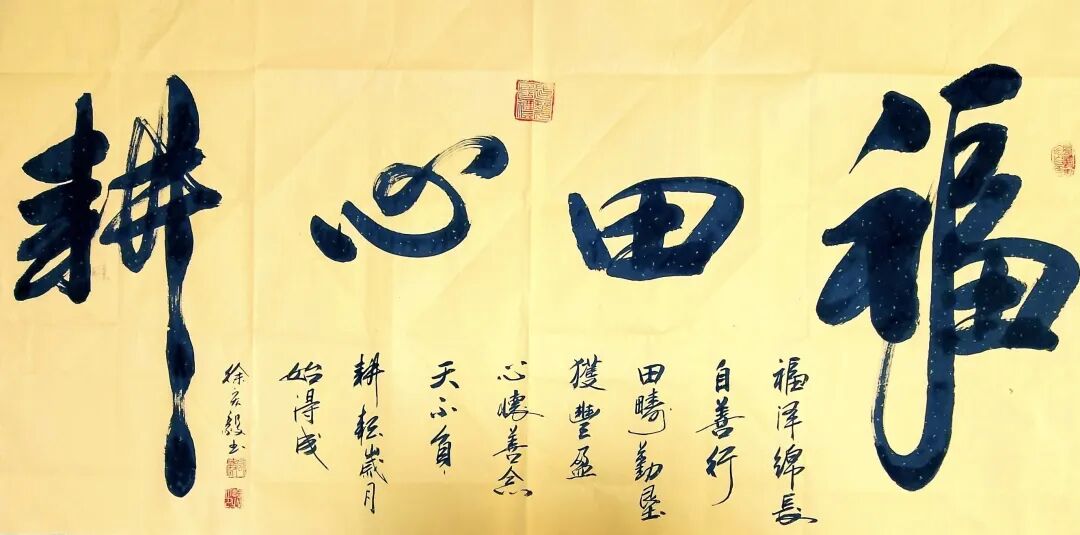 福田心耕
福泽绵长
自善行
田疇勤垦
獲豐盈
心懷善念
天不負
耕耘歲月
始得成
徐 毅书